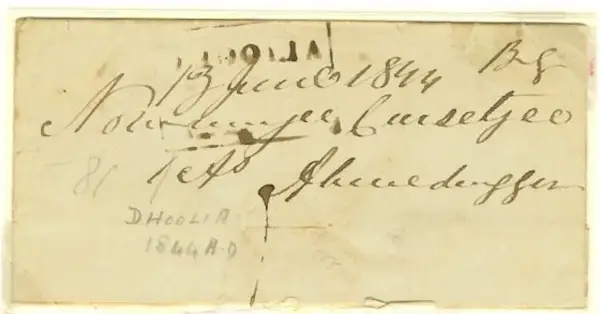 DHOOLIA
13 June 1844 Bg
Nowrunjee Cursetjee
Ahmednugger
DHOOLIA
1844 A.D